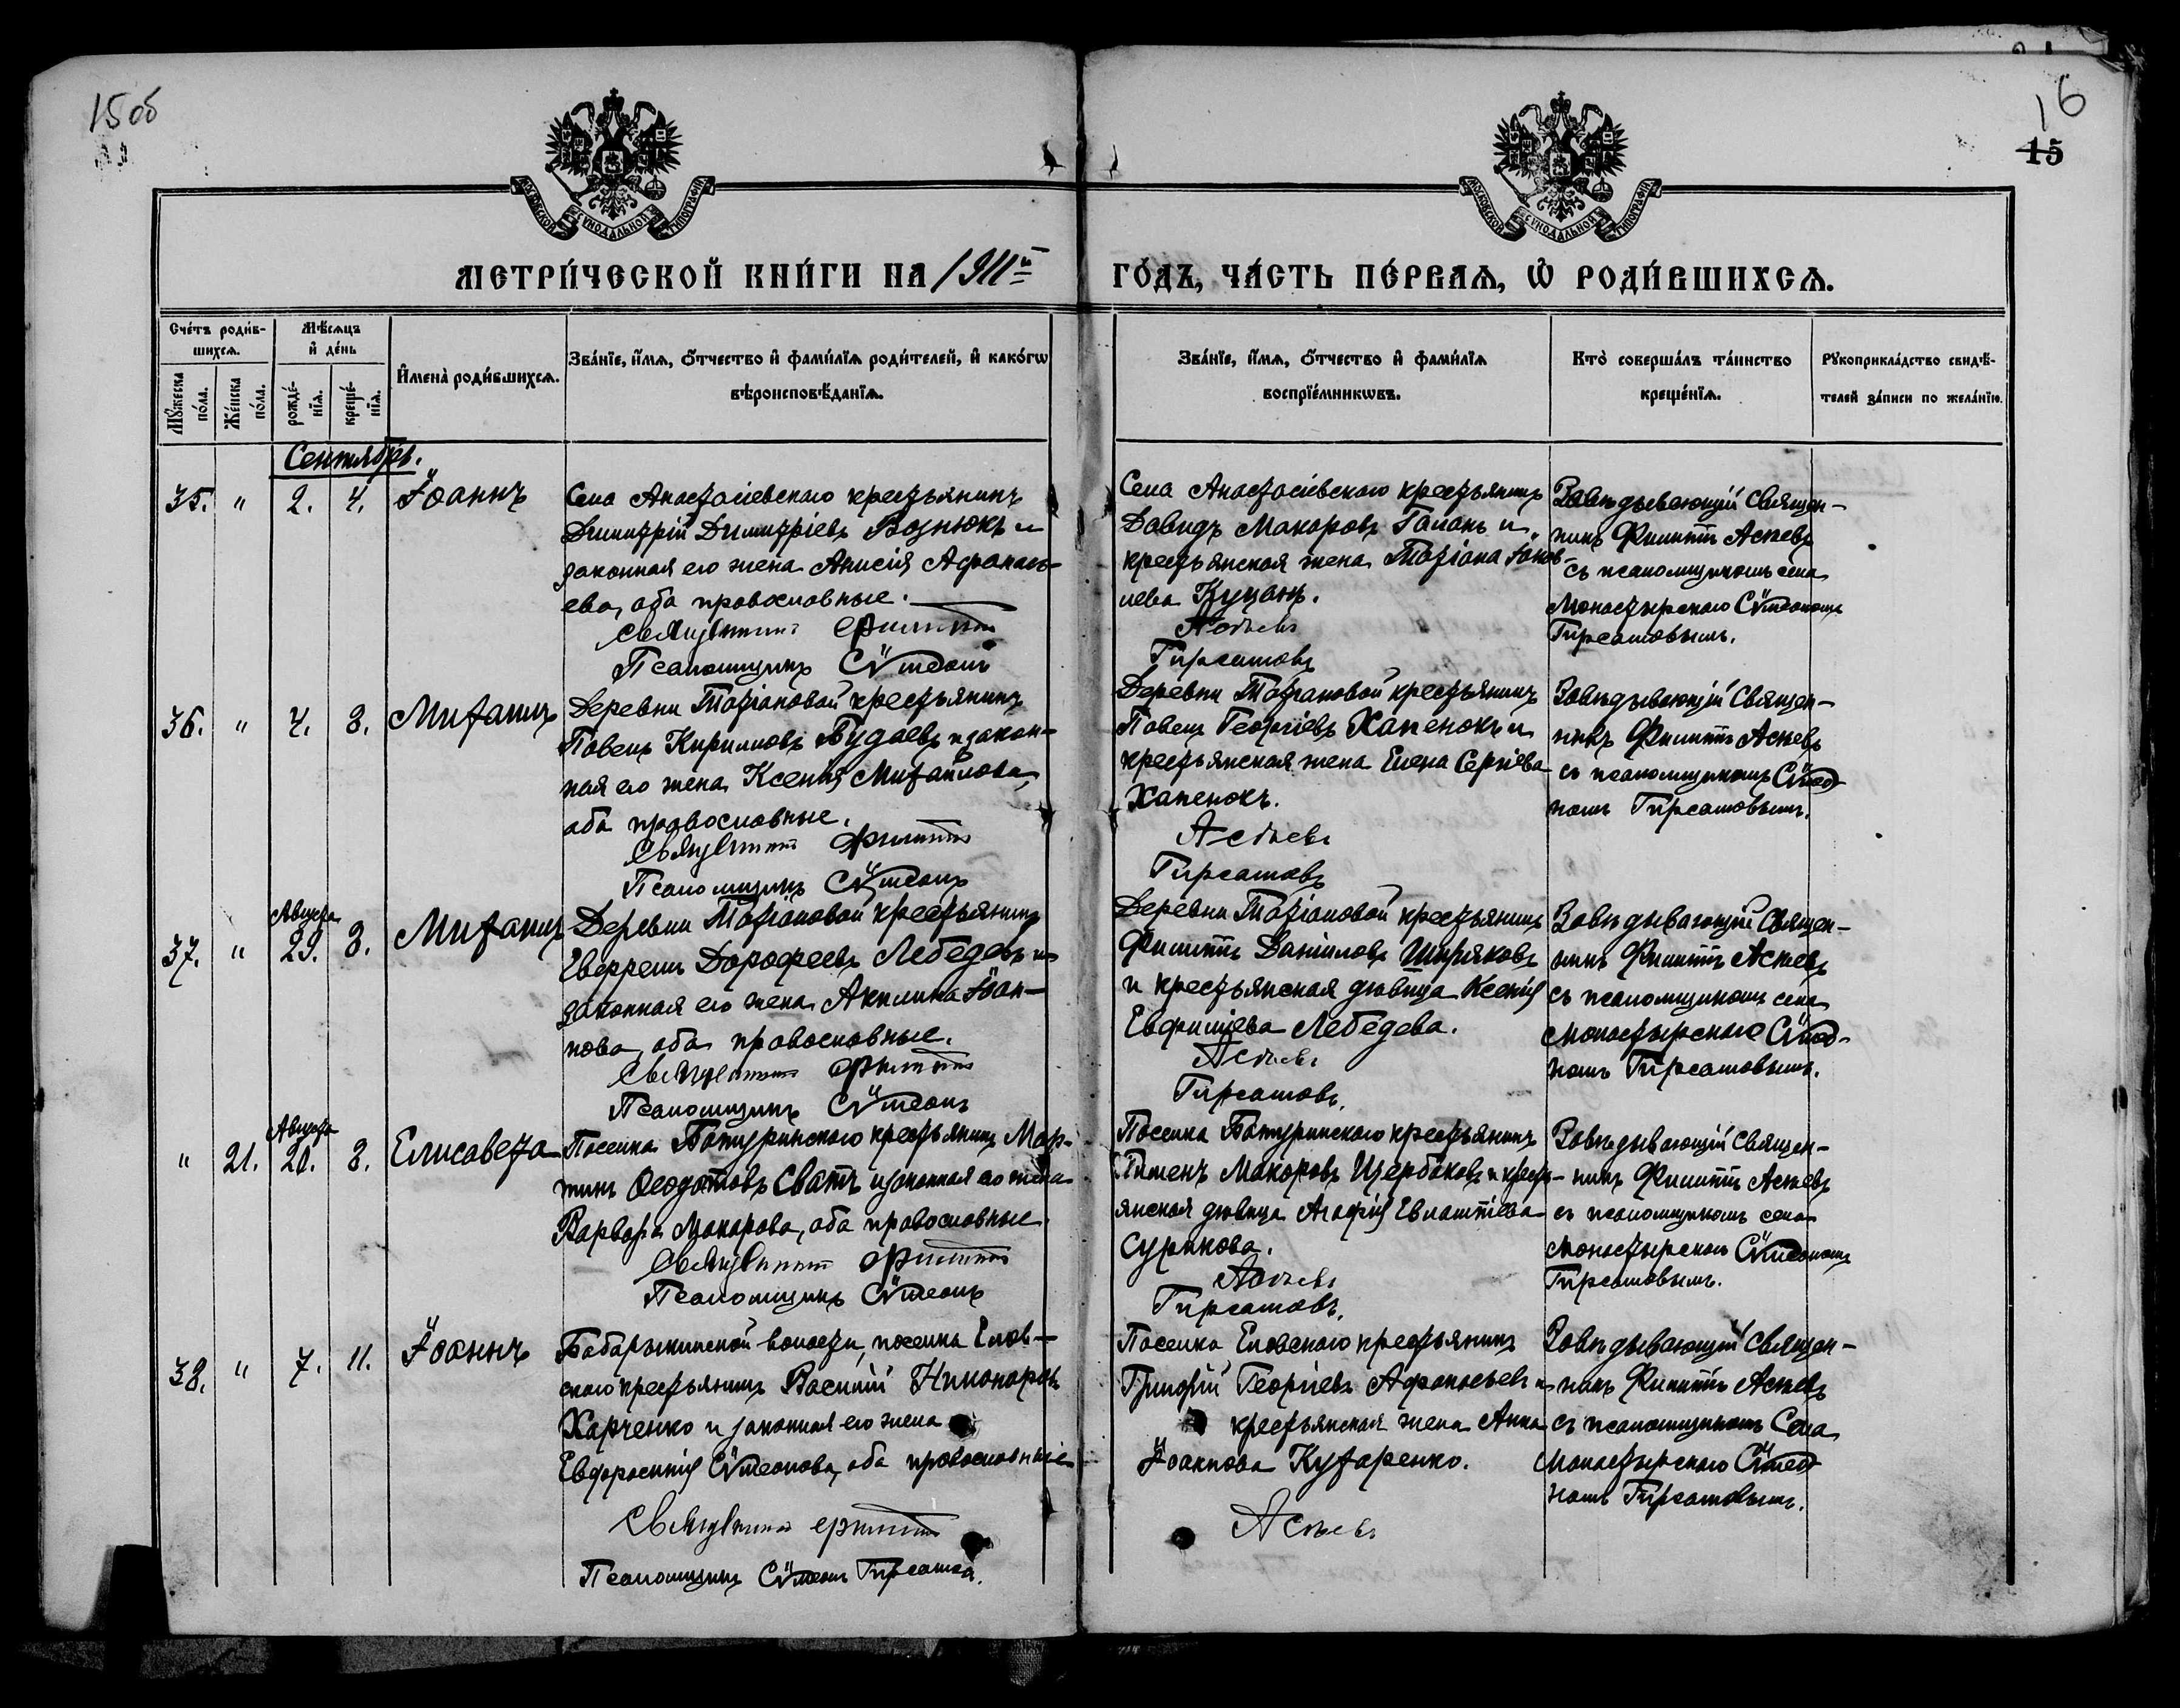 15об
16
15
МОСКОВСКОЙ СѴНОДАЛЬНОЙ ТИПОГРАФІИ
МОСКОВСКОЙ СѴНОДАЛЬНОЙ ТИПОГРАФІИ
МЕТРИ́ЧЕСКОЙ КНИ́ГИ НА 1911й
ГО́ДЪ, ЧА́СТЬ ПЕ́РВАѦ, Ѡ҆ РОДИ́ВШИХСѦ.
Сче́тъ роди́в-
шихсѧ.
Мꙋ́жеска по́ла.
Же́нска по́ла.
Мѣ́сѧцъ
и҆ де́нь
рожде́-
нїѧ.
креще́-
нїѧ.
И҆мена̀ роди́вшихсѧ.
Зва́нїе, и҆́мѧ, ѻ҆́тчество и҆ фами́лїѧ роди́телей, и҆ како́гѡ
вѣроисповѣ́данїѧ.
Зва́нїе, и҆́мѧ, ѻ҆́тчество и҆ фами́лїѧ
воспрїе́мникѡвъ.
Кто̀ соверша́лъ та́инство
креще́нїѧ.
Рꙋкоприкла́дство свидѣ́-
телей за́писи по жела́нїю.
Сентябрь.
35. " 2. 4. Іоаннъ
Села Анастасіевскаго крестьянинъ
Димитрій Димитріевъ Вознюкъ и
законная его жена Анисія Афанась-
ева, оба православные.
Священникъ Филиппъ
Псаломщикъ Сѵмеонъ
Села Анастасіевскаго крестьянинъ
Давидъ Макаровъ Галанъ и
крестьянская жена Татіана Іаков-
лева Куцанъ.
Асѣевъ
Тирсатовъ
Завѣдывающій Священ-
никъ Филиппъ Асѣевъ
съ псаломщикомъ села
Монастырскаго Сѵмеономъ
Тирсатовымъ.
36. " 4. 8. Михаилъ
Деревни Татіановой крестьянинъ
Павелъ Кирилловъ Будаевъ и закон-
ная его жена Ксенія Михайлова,
оба православные.
Священникъ Филиппъ
Псаломщикъ Сѵмеонъ
Деревни Татіановой крестьянинъ
Павелъ Георгіевъ Хапенокъ и
крестьянская жена Елена Сергіева
Хапенокъ.
Асѣевъ
Тирсатовъ
Завѣдывающій Священ-
никъ Филиппъ Асѣевъ
съ псаломщикомъ Сѵмео-
номъ Тирсатовымъ.
37. " Августа 29. 8. Михаилъ
Деревни Татіановой крестьянинъ
Евфремъ Дорофеевъ Лебедевъ и
законная его жена Акилина Іоан-
нова, оба православные.
Священникъ Филиппъ
Псаломщикъ Сѵмеонъ
Деревни Татіановой крестьянинъ
Филиппъ Даніиловъ Ширяковъ
и крестьянская дѣвица Ксенія
Лебедева.
Асѣевъ
Тирсатовъ.
Завѣдывающій Священ-
никъ Филиппъ Асѣевъ
съ псаломщикомъ села
Монастырскаго Сѵмео-
номъ Тирсатовымъ.
" 21. Августа 28. 8. Елисавета
Поселка Батуринскаго крестьянинъ Мар-
тинъ Ѳеодотовъ Сватъ и законная его жена
Варвара Макарова, оба православные
Священникъ Филиппъ
Псаломщикъ Сѵмеонъ
Поселка Батуринскаго крестьянинъ
Пименъ Макаровъ Щербаковъ и кресть-
янская дѣвица Агафія Евлампіева
Сурикова.
Асѣевъ
Тирсатовъ.
Завѣдывающій Священ-
никъ Филиппъ Асѣевъ
съ псаломщикомъ села
Монастырскаго Сѵмеономъ
Тирсатовымъ.
38. " 7. 11. Іоаннъ
Бабарыкинской волости, поселка Елов-
скаго крестьянинъ Василій Никаноровъ
Харченко и законная его жена
Евфросинія Сѵмеонова, оба православные
Священникъ Филиппъ
Псаломщикъ Сѵмеонъ Тирсатовъ.
Поселка Еловскаго крестьянинъ
Георгіевъ Афанасьевъ и
крестьянская жена Анна
Іоаннова Кухаренко.
Асѣевъ
Завѣдывающій Священ-
никъ Филиппъ Асѣевъ
съ псаломщикомъ Села
Монастырскаго Сѵмео-
номъ Тирсатовымъ.